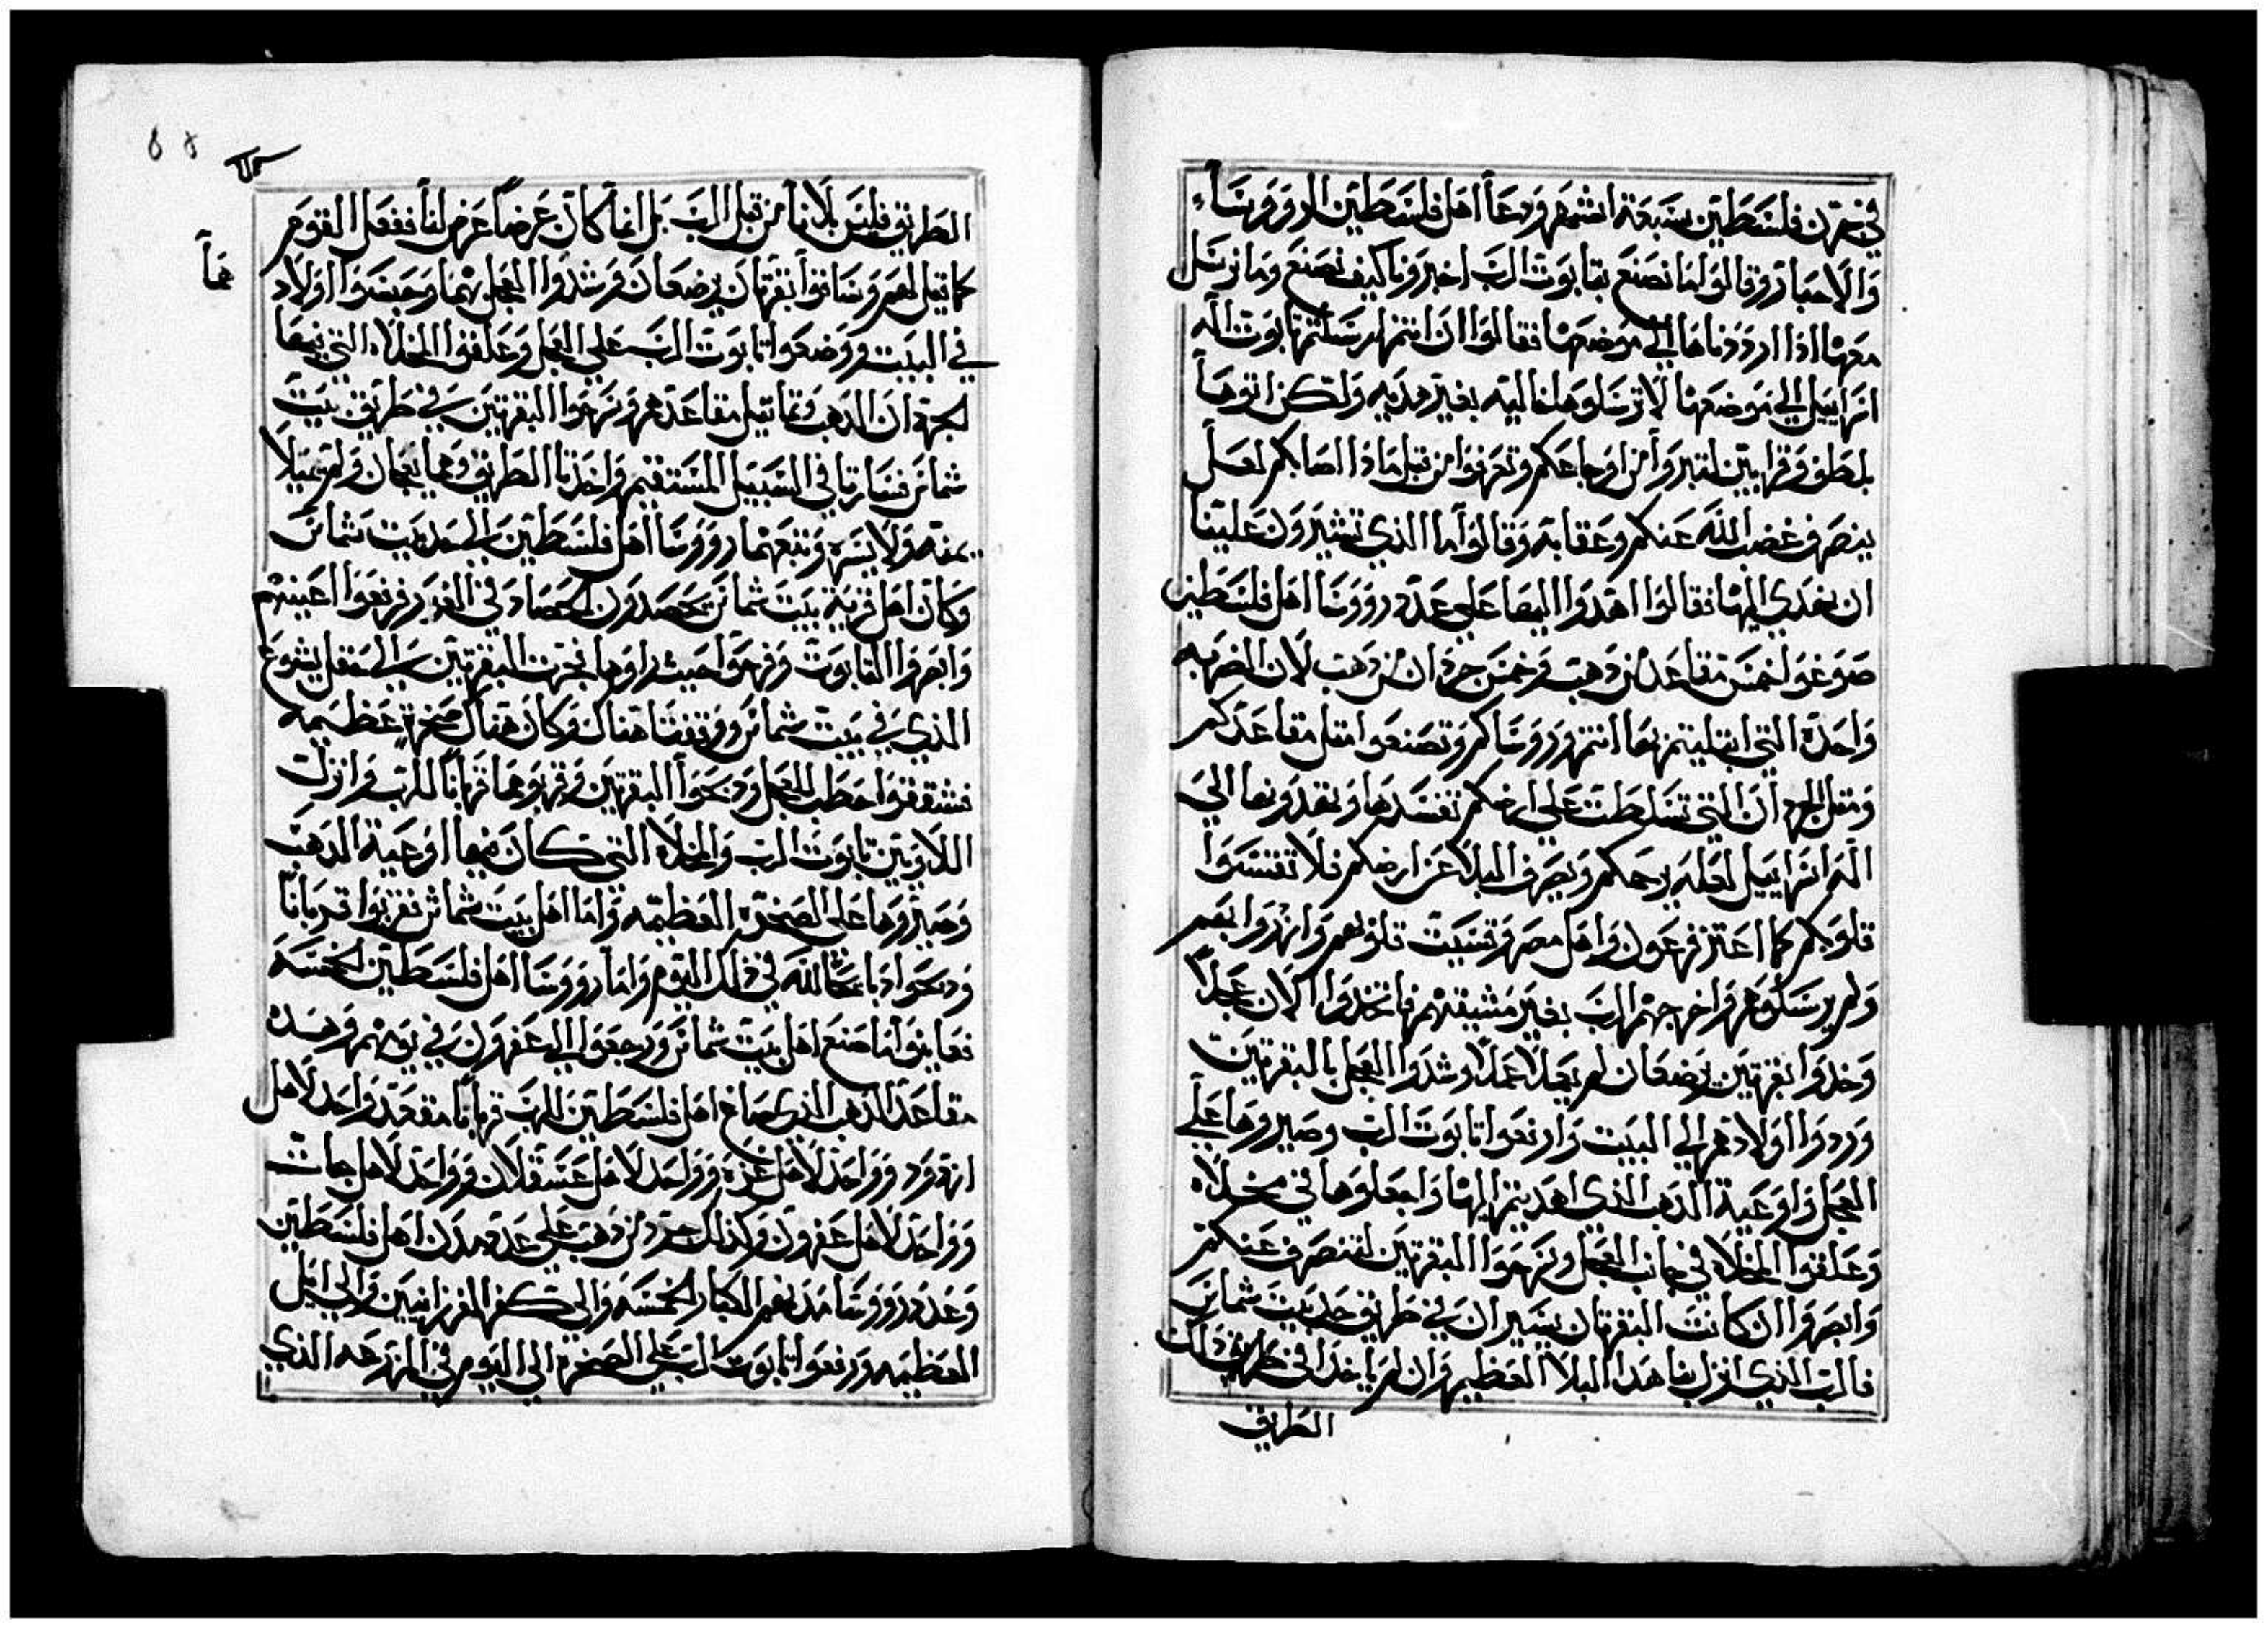 في عزن فلسطين سبعة اشهر ودعا اهل فلسطين الروورساء
والاحبار وقالوا ما نصنع بتابوت الرب اخبرونا كيف نصنع وما نرسل
معها اذا ارددناها الي موضعها فقالوا ان انتم ارسلتم تابوت اله
اسراييل الي موضعها لا ترسلوها خاليه بغير هديه ولكن اتوها
بلطف وقرابين لتبروا من اوجاعكم وتعرفوا من قبل ماذا اصابكم لعل
ينصرف غضب الله عنكم وعقابه وقالوا ما الذي تشيرون علينا
ان نهدي اليها فقالوا اهدوا اليها علي عدد رووسا اهل فلسطين
صوغوا خمس مقاعد من دهب وخمس جردان من دهب لان الضربه
واحدة التي ابتليتم بها انتم ورووساكم وتصنعوا مثل مقاعدكم
ومثل الجردان التي تسلطت علي ارضكم تفسدها وتقدونها الي
اله اسراييل لعله يرحمكم ويصرف البلا عن ارضكم فلا تقسوا
قلوبكم كما اعتز فرعون واهل مصر وقسيت قلوبهم وانهزوا بهم
ولم يرسلوهم واخرجهم الرب بغير مشيتهم فاتخدوا الان عجلا
وخدوا بقرتين يرضعان لم يعملا عملا وشدوا العجل بالبقرتين
وردوا اولادهم الي البيت وارفعوا تابوت الرب وصيروها علي
العجل واوعية الدهب الذي اهديتم اليها واجعلوها في مخلاه
وعلقوا المخلاه في جانب العجل وسرحوا البقرتين لتنصرف عنكم
وابصروا ان كانت البقرتان يسيران في طريق حد بيت شماس
فالرب الذي انزل بنا هدا البلا العظيم وان لم ياخدا في طريق دلك
الطريق
الطريق فليس بلانا من قبل الرب بل انما كان عرضا عرض لنا ففعل القوم
كما قيل لهم وساقوا بقرتان يرضعان وشدوا العجل بهما وحبسوا اولاد
هما
في البيت ووضعوا تابوت الرب علي العجل وعلقوا المخلاه التي فيها
الجردان الدهب وتماتيل مقاعدهم وسرحوا البقرتين في طريق بيت
شماس فسارتا في السبيل المستقيم واخدتا الطريق وهما يعجان ولم تميلا
يمنه ولا يسره وتبعهما رووسا اهل فلسطين الي حد بيت شماس
وكان اهل قرية بيت شماس يحصدون الحصاد في الغور فرفعوا اعينهم
وابصروا التابوت وفرحوا حيث راوها فجرت البقرتين الي حقل يشوع
الذي في بيت شماس ووقفتا هناك وكان هناك صخرة عظيمه
فشققوا حطب العجل ودبحوا البقرتين وقربوهما قربانا للرب وانزلت
اللاويين تابوت الرب والمخلاه التي كان فيها اوعية الدهب
وصيروها علي الصخره العظيمه واما اهل بيت شماش فقربوا قربانا
ودبحوا دبايحا لله في ذلك اليوم واما رووسا اهل فلسطين الخمسه
فعاينوا ما صنع اهل بيت شماس ورجعوا الي عفرون في يومهم وهده
مقاعد الدهب الذي صاغ اهل فلسطين للرب قربانا مقعد واحد لاهل
ازدود وواحد لاهل غزه وواحد لاهل عسقلان وواحد لاهل جات
وواحد لاهل عفرون وكذلك جرد من دهب علي عدد مدن اهل فلسطين
وعدد رووسا مدنهم الكبار الخمسه والي كفر الفرزانيين والي ابيل
العظيمه ورفعوا تابوت الرب علي الصخرة الي اليوم في المزرعه الذي